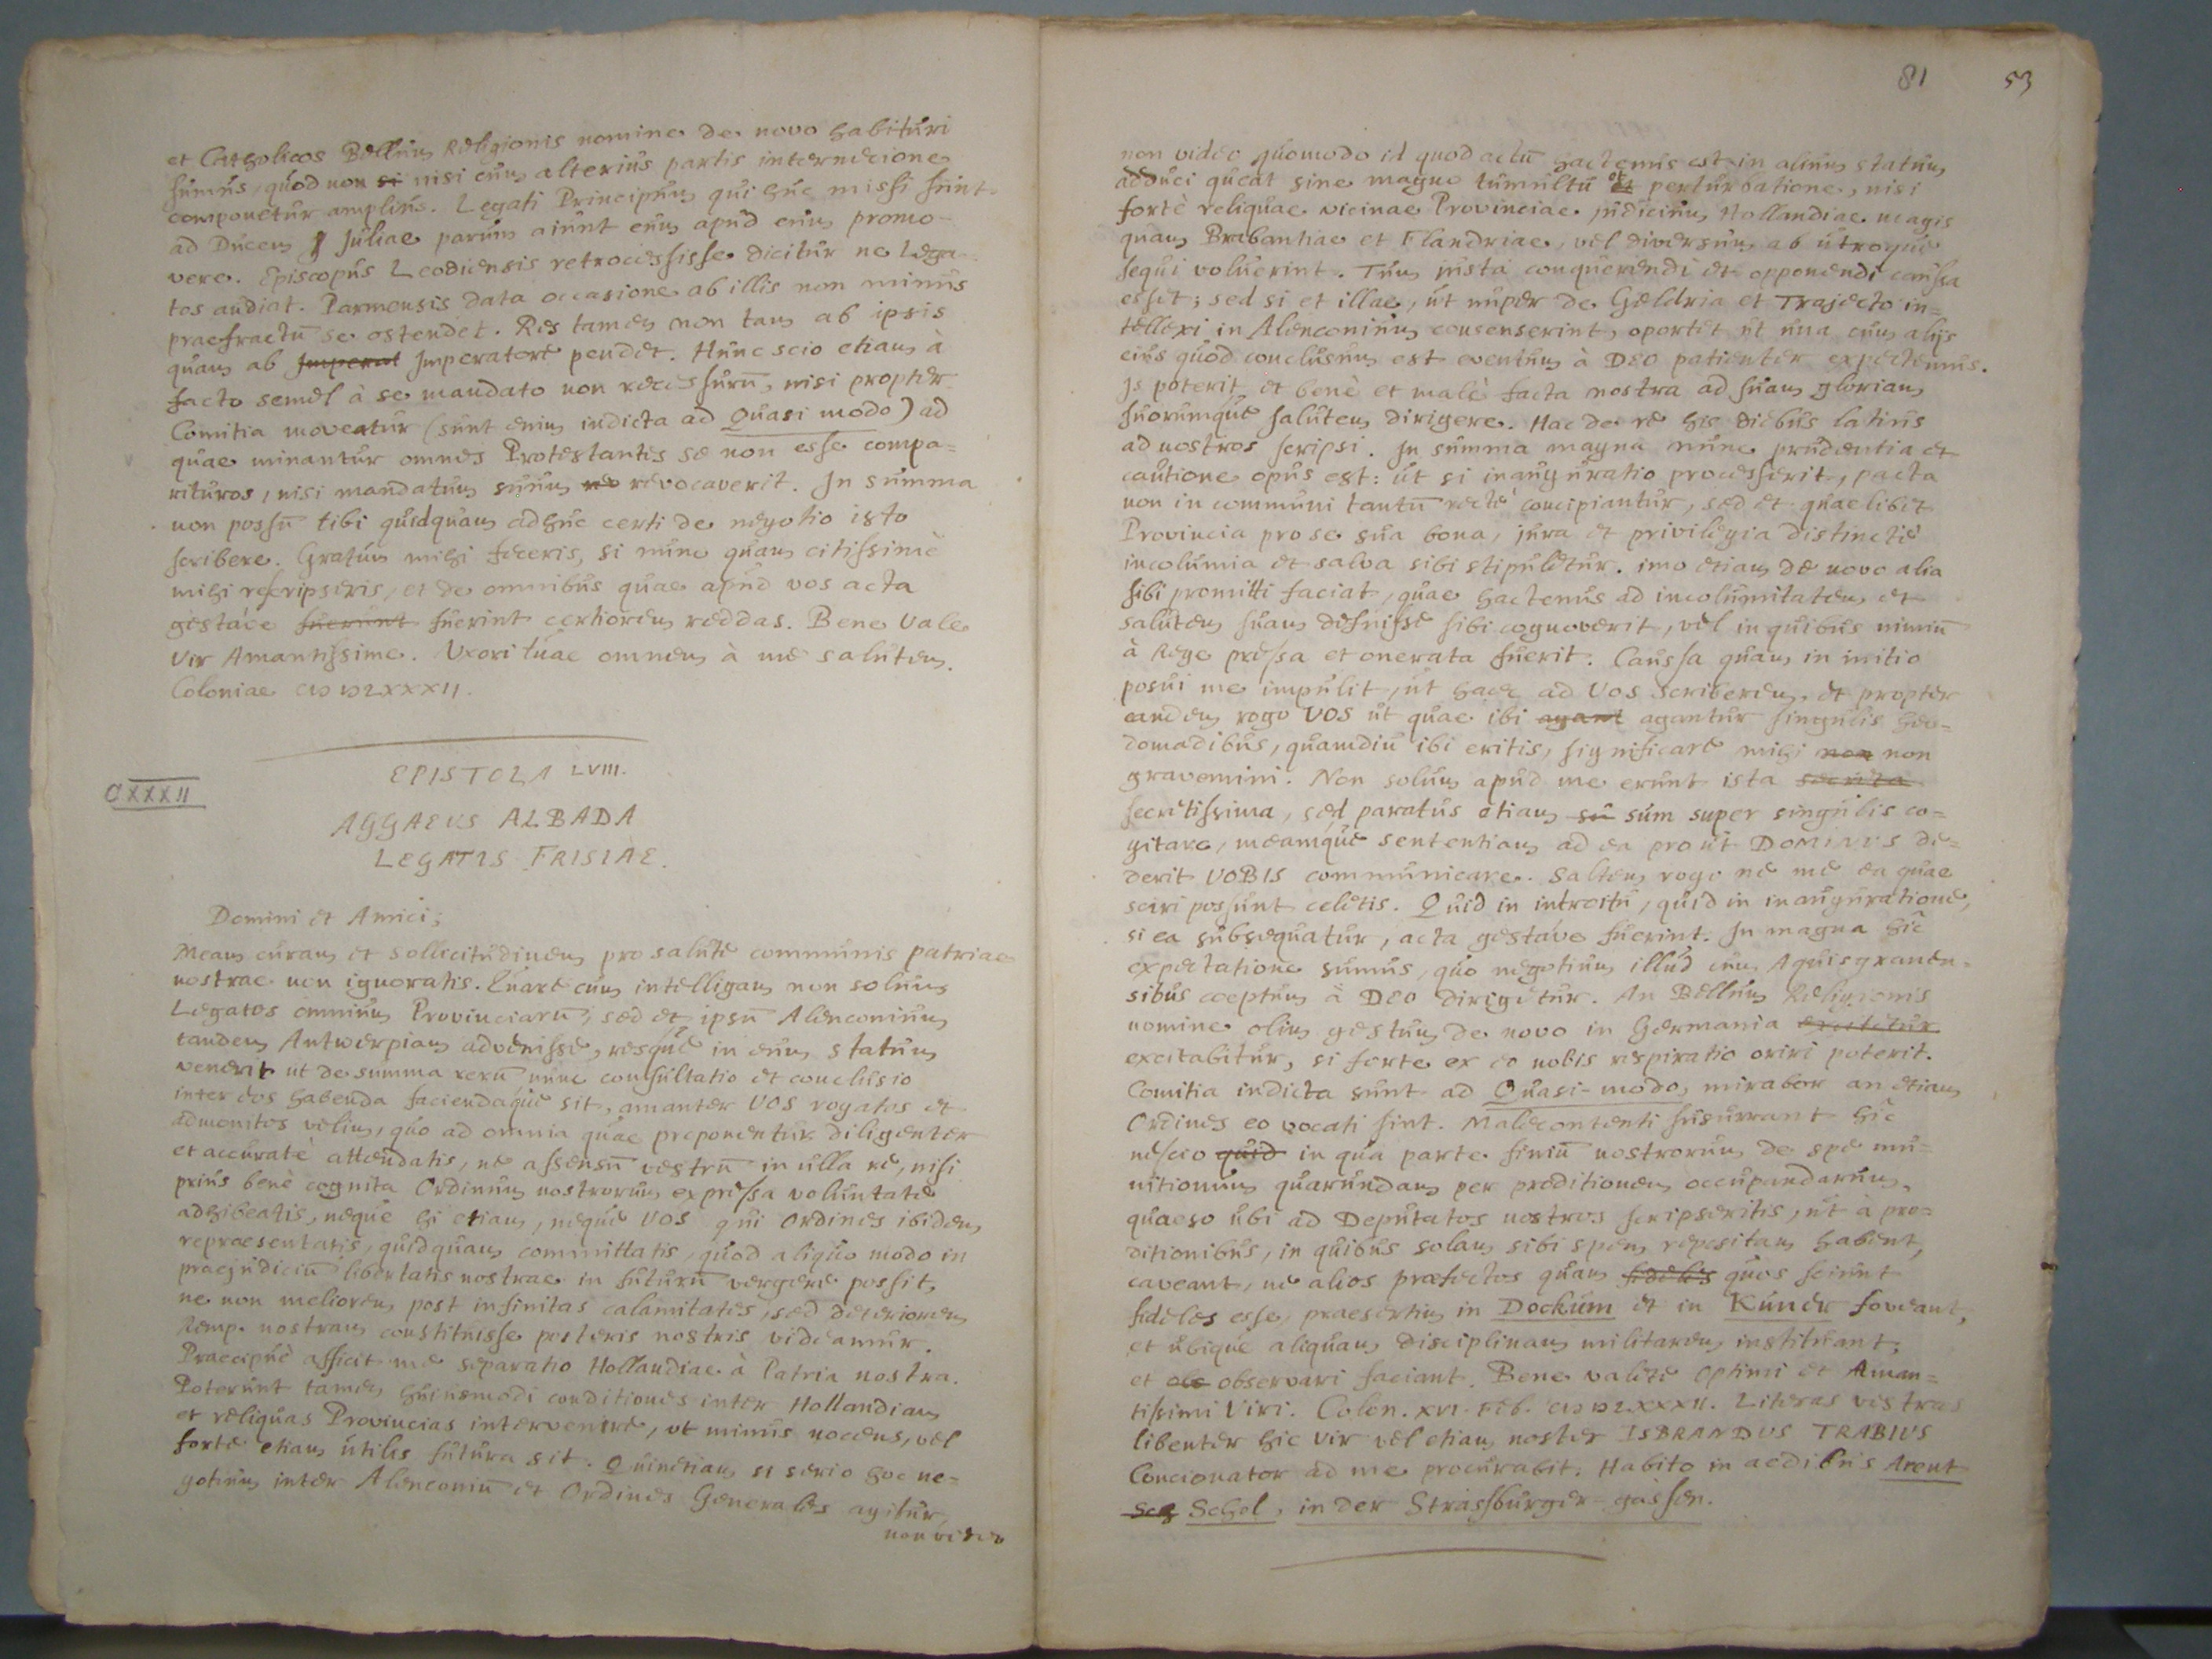 et Catholicos Bellum Religionis nomine de novo habituri
sumus, quod non si nisi cum alterius partis internecione
componetur amplius. Legati Principum qui huc missi sunt
ad Ducem J Juliae parum aiunt eum apud eum promo-
vere. Episcopus Leodiensis retrocessisse dicitur ne Lega-
tos audiat. Parmensis data occasione ab illis non minus
praefractū se ostendet. Res tamen non tam ab ipsis
quam ab Imperat Imperatore pendet. Hunc scio etiam à
facto semel à se mandato non recessurū, nisi propter
Comitia moveatur (sunt enim indicta ad Quasi modo) ad
quae minantur omnes Protestantes se non esse compa=
rituros, nisi mandatum suum re revocaverit. In summa
non possū tibi quidquam adhuc certi de negotio isto
scribere. Gratum mihi feceris, si nunc quam citissimè
mihi rescripseris, et de omnibus quae apud vos acta
gestáve fuerunt fuerint certiorem reddas. Bene Vale
Vir Amantissime. Uxori tuae omnem à me salutem.
Coloniae CIƆ IƆ LXXXII.
EPISTOLA LVIII.
CXXXII
AGGAEUS ALBADA
LEGATIS FRISIAE.
Domini et Amici;
Meam curam et sollicitudinem pro salute communis patriae
nostrae non ignoratis. Quare cum intelligam non solum
Legatos omnium Provinciarū, sed et ipsū Alenconium
tandem Antwerpiam advenisse, resque in eum statum
venerit ut de summa rerū nunc consultatio et conclusio
inter eos habenda faciendaque sit, amanter VOS rogatos et
admonitos velim, quo ad omnia quae proponentur diligenter
et accuratè attendatis, ne assensū vestrū in ulla re, nisi
prius benè cognita Ordinum nostrorum expressa voluntate
adhibeatis, neque hi etiam, neque VOS qui Ordines ibidem
repraesentatis, quidquam committatis, quod aliquo modo in
praejudiciū libertatis nostrae in futurū vergere possit,
ne non meliorem post infinitas calamitates, sed deteriorem
Remp. nostram constituisse posteris nostris videamur.
Praecipuè afficit me separatio Hollandiae à Patria nostra.
Poterunt tamen huiusmodi conditiones inter Hollandiam
et reliquas Provincias intervenire, ut minus nocens, vel
forte etiam utilis futura sit. Quinetiam si serio hoc ne-
gotium inter Alenconiū et Ordines Generales agitur,
non video
81 53
non video quomodo id quod actū hactenus est in alium statum
adduci queat sine magno tumultu et et perturbatione, nisi
fortè reliquae vicinae Provinciae judicium Hollandiae magis
quam Brabantiae et Flandriae, vel diversum ab utroque
sequi voluerint. Tum justa conquerendi et opponendi caussa
esset; sed si et illae, ut nuper de Gaeldria et Trajecto in=
tellexi in Alenconium consenserint, oportet ut una cum alijs
eius quod conclusum est eventum à DEO patienter expectemus.
Is poterit et benè et malè facta nostra ad suam gloriam
suorumque salutem dirigere. Hac de re his diebus latius
ad nostros scripsi. In summa magna nunc prudentia et
cautione opus est: ut si inauguratio processerit, pacta
non in communi tantū rectè concipiantur, sed et quaelibet
Provincia pro se sua bona, jura et privilegia distincte
incolumia et salva sibi stipuletur. imo etiam de novo alia
sibi promitti faciat, quae hactenus ad incolumitatem et
salutem suam defuisse sibi cognoverit, vel in quibus nimiū
à Rege pressa et onerata fuerit. Caussa quam in initio
posui me impulit, ut haec ad VOS scriberem, et propter
eandem rogo VOS ut quae ibi agant agantur singulis heb=
domadibus, quamdiu ibi eritis, significare mihi non non
gravemini. Non solum apud me erunt ista secreta
secretissima, sed paratus etiam su sum super singulis co=
gitare, meamque sententiam ad ea pro ut DOMINUS de=
derit VOBIS communicare. Saltem rogo ne me ea quae
sciri possunt celetis. Quid in introitu, quid in inauguratione,
si ea subsequatur, acta gestáve fuerint. In magna hîc
expectatione sumus, quo negotium illud cum Aquisgranen-
sibus coeptum à DEO dirigetur. An Bellum Religionis
nomine olim gestum de novo in Germania excitetur
excitabitur, si forte ex eo nobis respiratio oriri poterit.
Comitia indicta sunt ad Quasi-modo, mirabor an etiam
Ordines eo vocati sint. Malecontenti susurrant hîc
nescio quid in qua parte finiū nostrorum de spe mu=
nitionum quarundam per proditionem occupandarum,
quaeso ubi ad Deputatos nostros scripseritis, ut à pro=
ditionibus, in quibus solam sibi spem repositam habent,
caveant, ne alios praefectos quam fideles quos sciunt
fideles esse, praesertim in Dockum et in Kuner foveant,
et ubique aliquam disciplinam militarem instituant,
et obs observari faciant. Bene valete Optimi et Aman=
tissimi Viri. Colon. XVI. Feb. CIƆ IƆ LXXXII. Literas vestras
libenter hic vir vel etiam noster ISBRANDUS TRABIUS
Concionator ad me procurabit. Habito in aedibus Arent
Seh Schol, in der Strassburger-gassen.